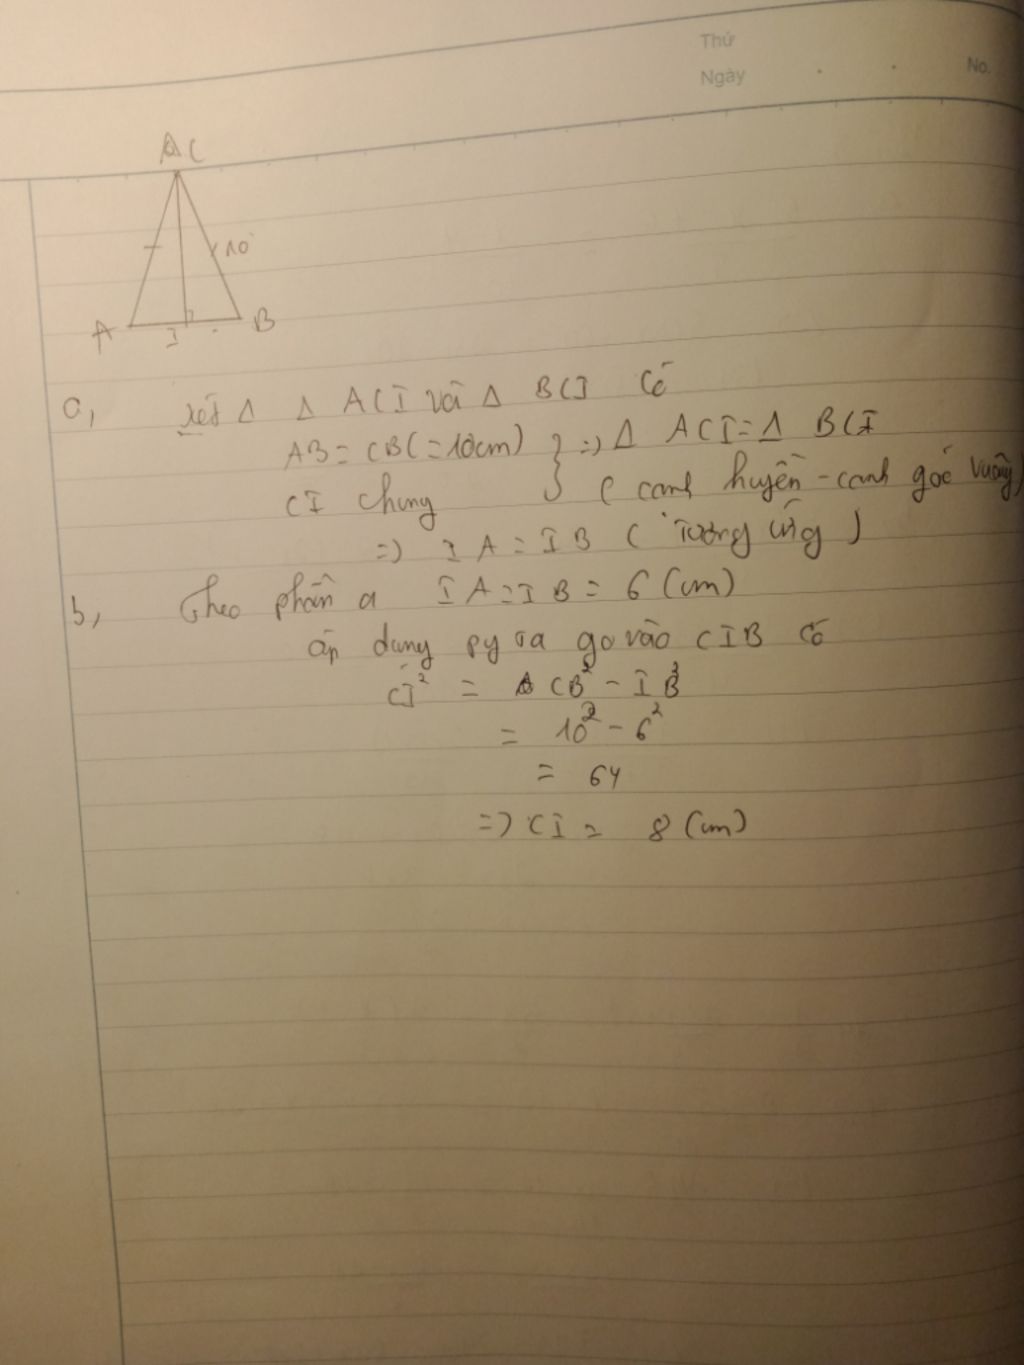 Thứ
Ngày
No.
A C
10
A
I
B
a, xét Δ Δ ACI và Δ BCI có
AB = CB (= 10cm) } => Δ ACI = Δ BCI
CI chung (cạnh huyền - cạnh góc vuông)
=> IA = IB (tương ứng)
b, Theo phần a IA = IB = 6 (cm)
áp dụng py ta go vào CIB có
CI² = CB² - IB²
= 10² - 6²
= 64
=> CI = 8 (cm)